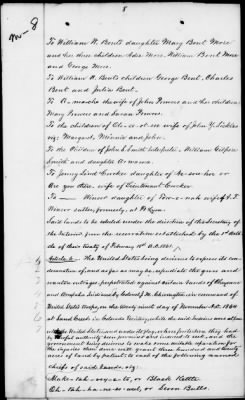 8
No-8
To William W. Bents daughter Mary Bent More
and her three children Adia More, William Bent More
and George More.
To William W. Bents children George Bent, Charles
Bent and Julia Bent.
To A-ma-che the wife of John Prowers and her children
Mary Prowers and Susan Prowers.
To the children of wife of John Y. Sickles
viz: Margaret, Minnie and John.
To the Children of John S. Smith Interpreter, William Gilpin
Smith and daughter Armama.
To Jenny Lind Crocker daughter of Ne-sou-hoe or
Are you there, wife of Lieutenant Crocker
To — Winsor daughter of Tow-e-nah wife of A. T.
Winsor sutler, formerly, at Ft. Lyon.
Said lands to be selected under the direction of the Secretary of
the Interior from the reservation established by the 1st Article
of their treaty of February 18th A.D. 1861.
Article 6. The United States being desirous to express its con-
demnation of, and as far as may be, repudiate the gross and
wanton outrages perpetrated against certain bands of Cheyenne
and Arrapahoe Indians by Colonel J. M. Chivington in command of
United States troops, on the twenty ninth day of November A.D. 1864
at Sand Creek in Colorado Territory, while the said Indians were at peace
with the United States and under its flag, whose protection they had
by lawful authority been promised and induced to seek, and the
government being desirous to make some suitable reparation for
the injuries then done will grant three hundred and twenty
acres of land by patent to each of the following named
chiefs of said bands, viz:
Make-tah-vo-yo-to, or Black Kettle
Oh-tah-ha-ne-so-weel, or Seven Bulls.